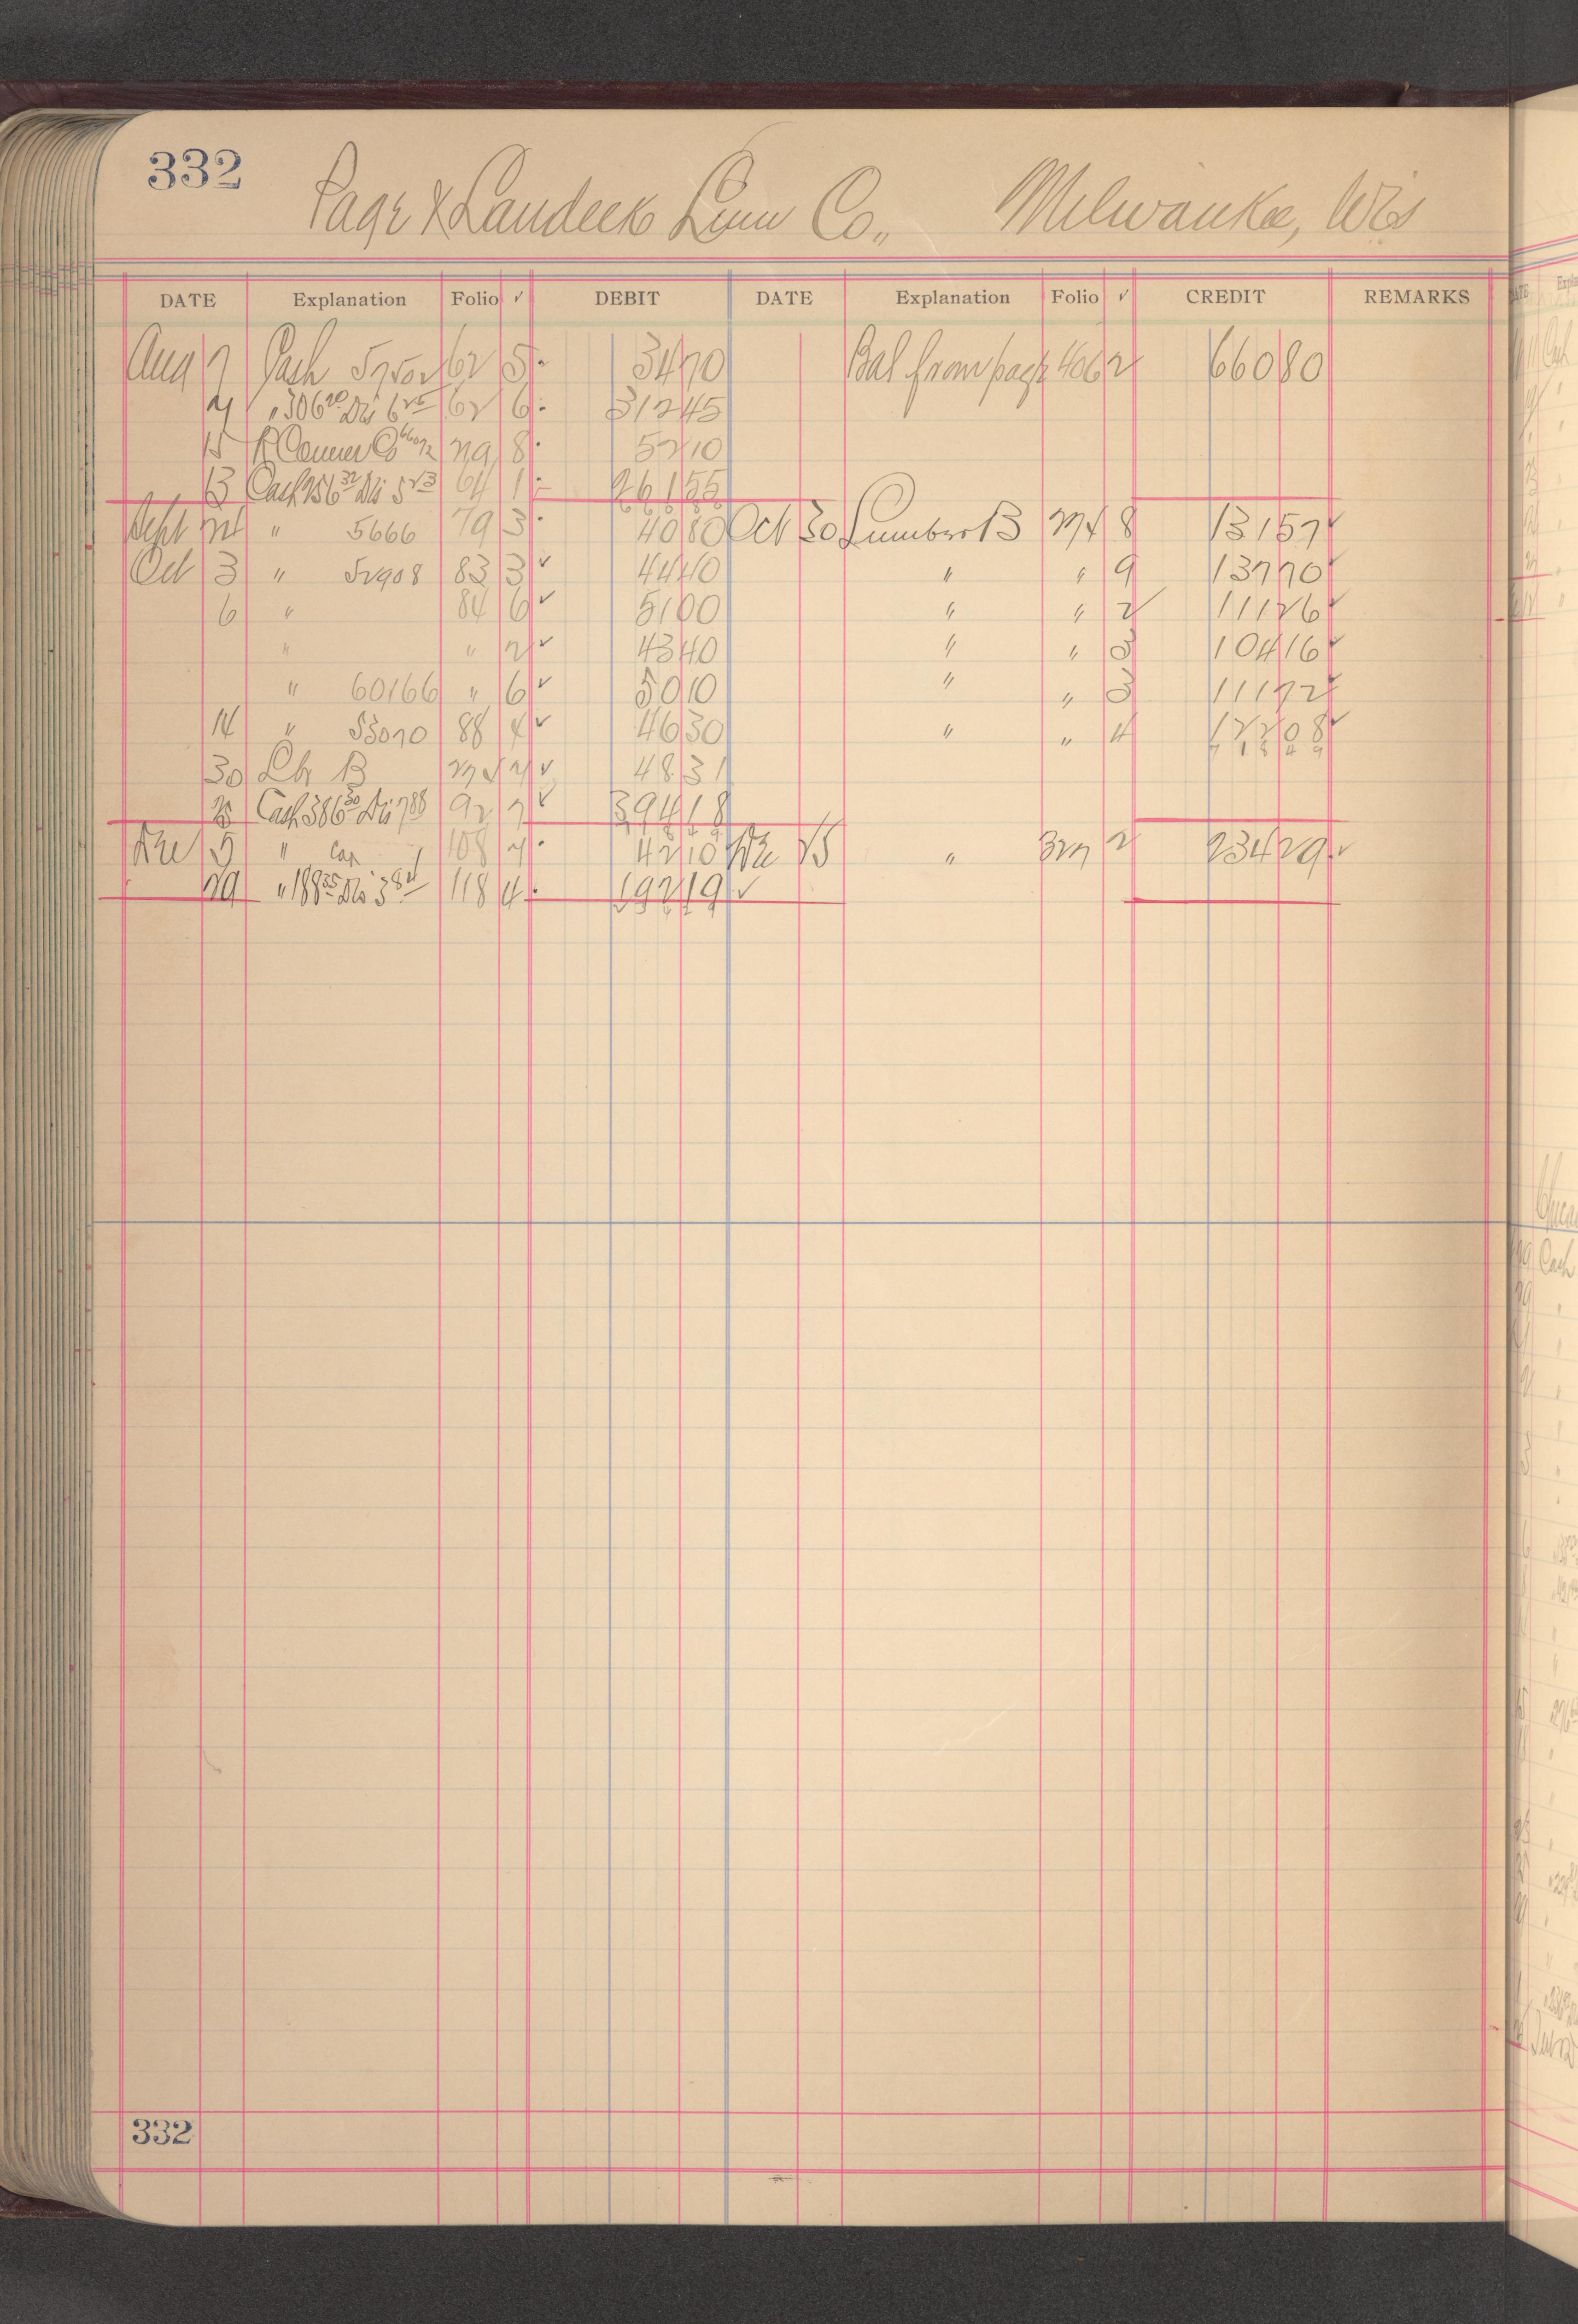 332
Page & Landeck Lum Co., Milwaukee, Wis
DATE Explanation Folio √ DEBIT DATE Explanation Folio √ CREDIT REMARKS
Aug 7 Cash 62 5 34 70 Bal from page 406 2 660 80
" 306 20 Dis 6 25 62 6 312 45
15 R Connor Co 29 8 52 10
13 Cash 256 32 Dis 5 23 64 1 261 55
Sept 24 " 5666 79 3 40 80 Oct 30 Lumber B 274 8 131 57
Oct 3 " 52908 83 3 44 40 " " 9 137 70
6 " 84 6 51 00 " " 2 111 26
" " 2 43 40 " " 3 104 16
" 60166 " 6 50 10 " " 3 111 72
14 " 53070 88 4 46 30 " " 4 122 08
718 49
30 Lbr B 274 7 48 31
Cash 386 30 Dis 7 88 92 7 394 18
Dec 5 " Car 108 7 42 10 Dec 15 " 327 2 234 29
29 " 188 35 Dis 3 84 118 4 192 19
332